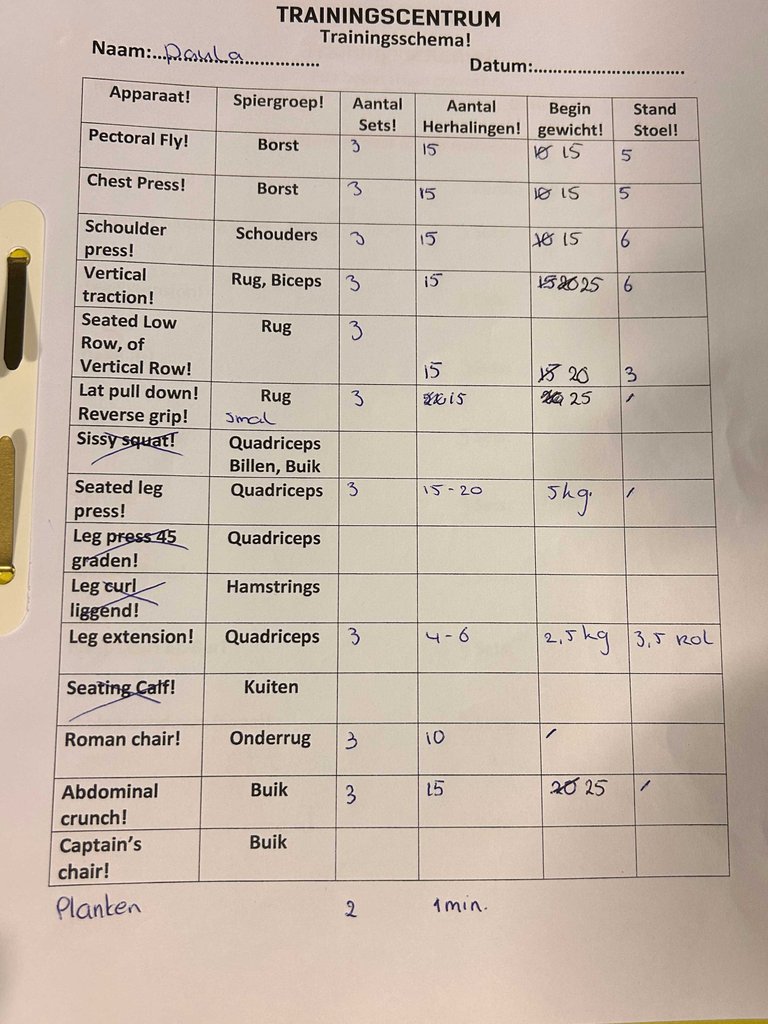 TRAININGSCENTRUM
Trainingsschema!
Naam:...Paula.............................
Datum:.................................
Apparaat! Spiergroep! Aantal Sets! Aantal Herhalingen! Begin gewicht! Stand Stoel!
Pectoral Fly! Borst 3 15 10 15 5
Chest Press! Borst 3 15 10 15 5
Schoulder press! Schouders 3 15 10 15 6
Vertical traction! Rug, Biceps 3 15 15 20 25 6
Seated Low Row, of Vertical Row! Rug 3 15 15 20 3
Lat pull down! Reverse grip! Rug smal 3 15 20 25 /
Sissy squat! Quadriceps Billen, Buik
Seated leg press! Quadriceps 3 15-20 5kg. /
Leg press 45 graden! Quadriceps
Leg curl liggend! Hamstrings
Leg extension! Quadriceps 3 4-6 2,5kg 3,5 rol
Seating Calf! Kuiten
Roman chair! Onderrug 3 10 /
Abdominal crunch! Buik 3 15 20 25 /
Captain's chair! Buik
Planken 2 1min.